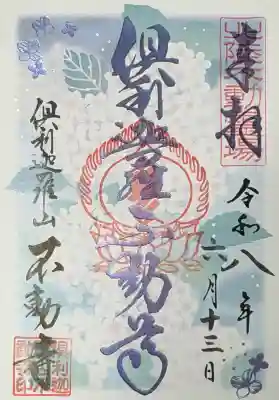 奉拝
令和八年
六月十三日
倶利迦羅不動尊
倶利迦羅山
不動寺